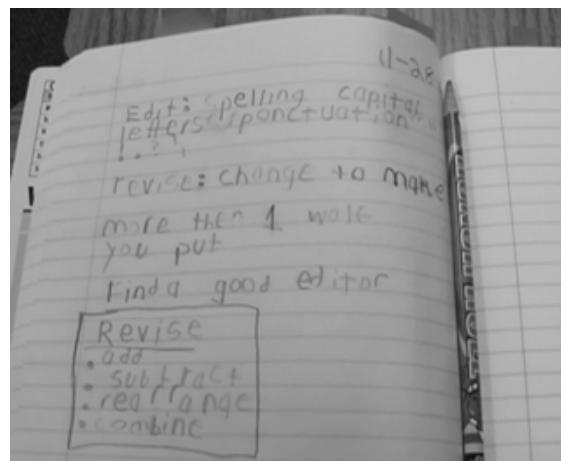 11-28
Edit: spelling capital
letters ponctuation
. . ? !
revise: change to make
more then 1 wolf
you put
Find a good editor
Revise
• add
• subtract
• rearrange
• combine